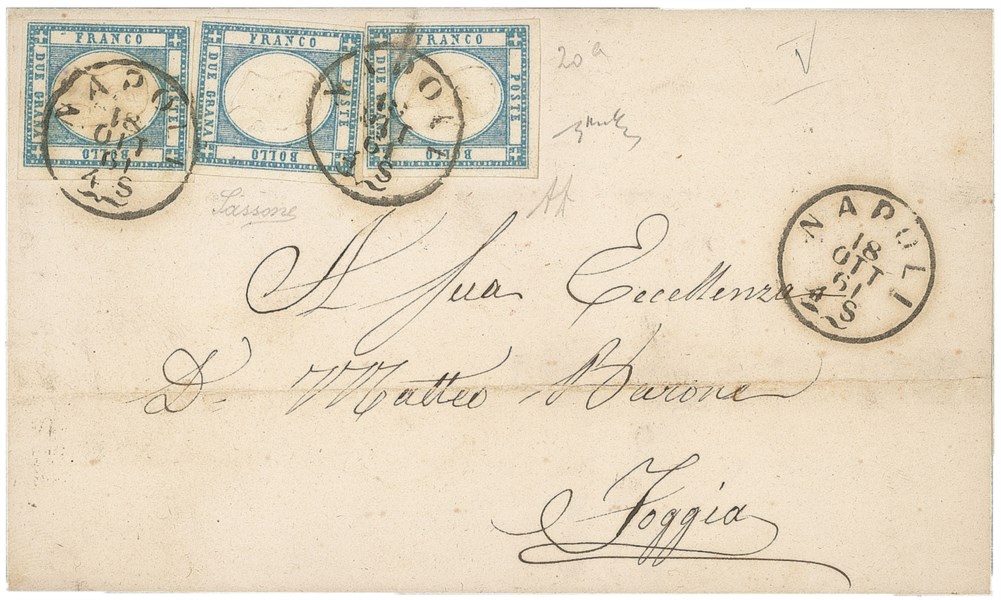 FRANCO DUE GRANA POSTE BOLLO
FRANCO DUE GRANA POSTE BOLLO
FRANCO DUE GRANA POSTE BOLLO
NAPOLI 18 OTT 61 4 S
NAPOLI 18 OTT 61 4 S
20a
Sassone
NAPOLI
18
OTT
61
4 S
A Sua Eccellenza
Dn. Matteo Barone
Foggia